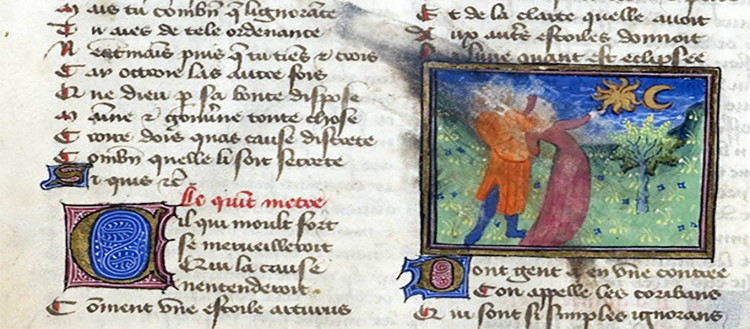 Mais tu combn̄ q̄ lignorante
Tu aies de tele ordenance
Nest mais puis q̄ tu tiens ⁊ crois
octroie las autre fois
Que dieu p̄ sa bonte dispose
Maine ⁊ gouuerne toute chose
Croire dois quas cause discrete
Combn̄ quelle li soit secrete
Et quis ⁊c̄
Le quint metre
Cil qui moult fort
se merueilleroit
Qui la cause
nentenderoit
Coment vne estoile arturus
Et de la clarte quelle auoit
Aux autres estoiles donnoit
La lune quant est eclipsee
Dont gent a en vne contree
Con appelle les coribans
Qui sont si simples ignorans